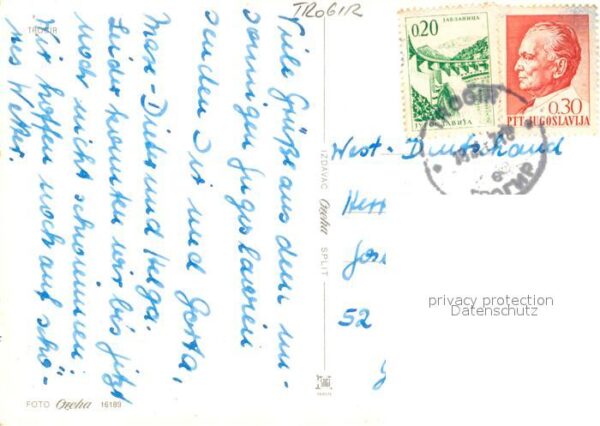 TROGIR
TROGIR
Viele Grüße aus dem un-
sonnigen Jugoslawien
senden Ist und Gorta,
Max-Dieter und Helga.
Leider konnten wir bis jetzt
noch nicht schwimmen
Wir hoffen noch auf schö-
nes Wetter.
FOTO Ozeha 16189
IZDAVAČ Ozeha SPLIT
0,20
JUGOSLAVIJA
0.30
PTT JUGOSLAVIJA
West-Deutschland
Herr
52
privacy protection
Datenschutz